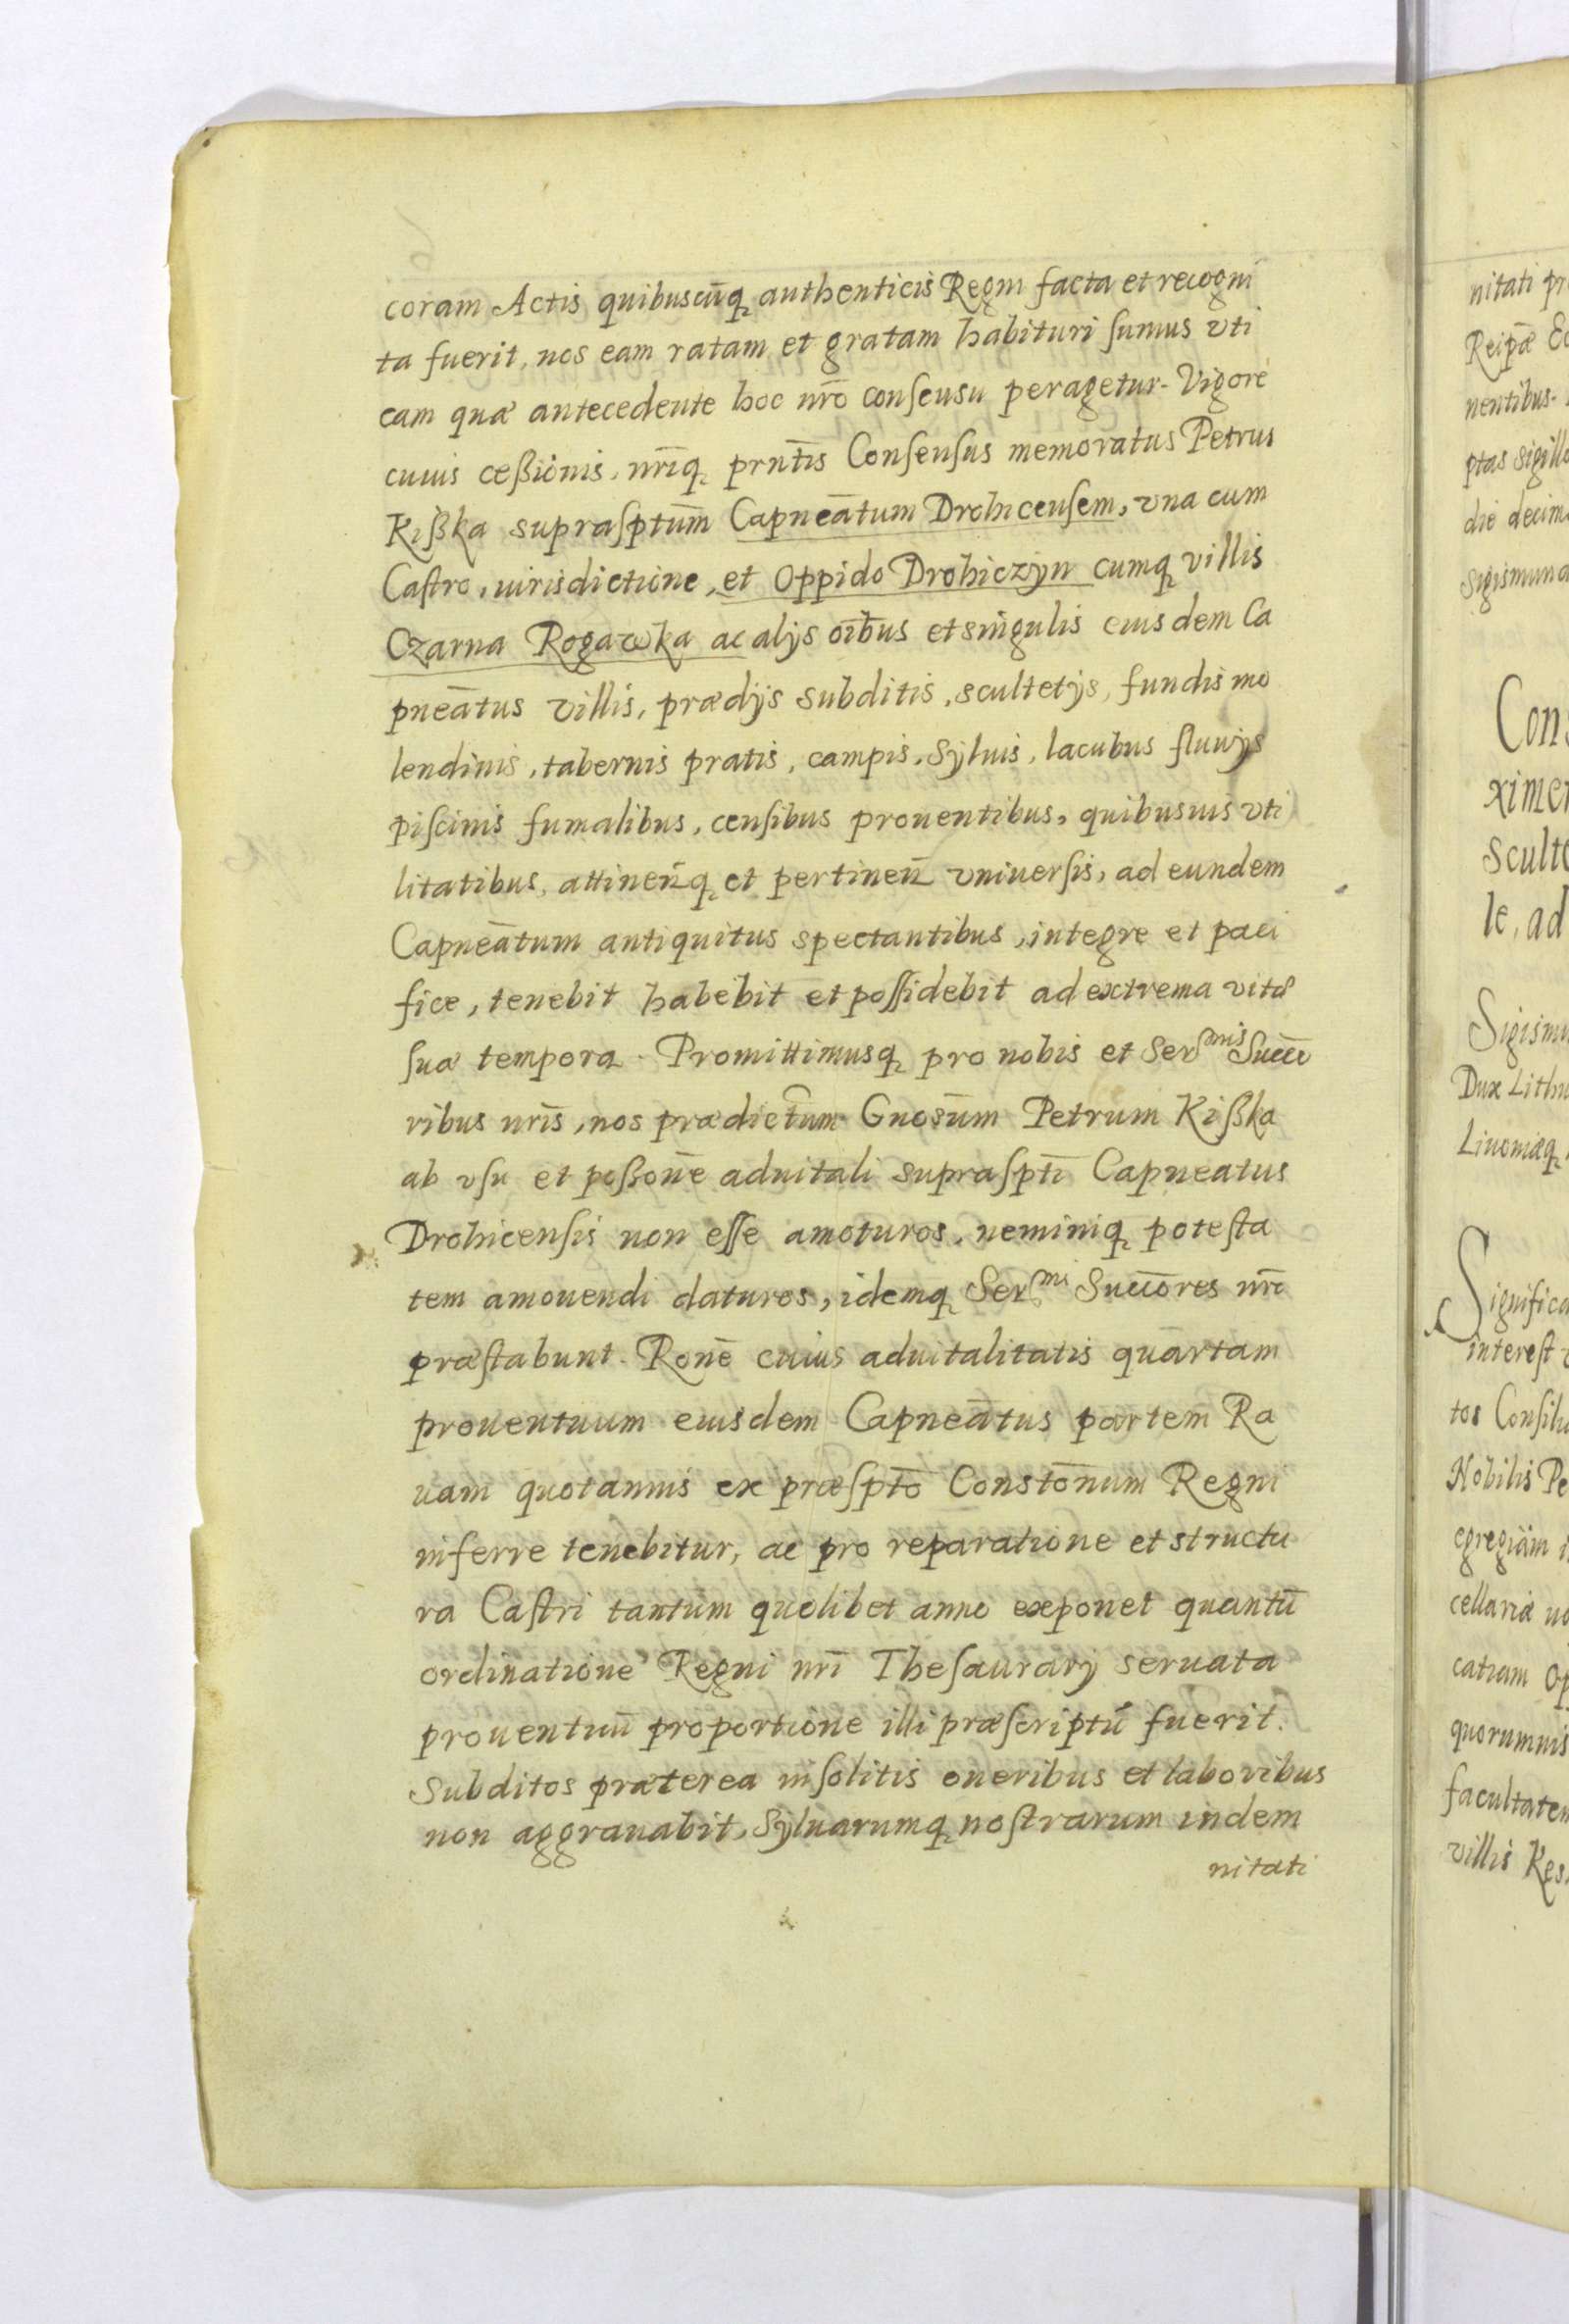 coram Actis quibuscūq₃ authenticis Regni facta et recogni
ta fuerit, nos eam ratam et gratam habituri ſumus vti
eam quæ antecedente hoc nr̄o conſensu peragetur. Vigore
cuius ceßionis, nr̄iq₃ prn̄tis Conſenſus memoratus Petrus
Kißka supraſptūm Capneātum Drohicenſem, vna cum
Caſtro, iurisdictione, et Oppido Drohiczÿn cumq₃ villis
Czarna Rogawka ac alÿs oībus et singulis eius dem Ca
pneātus villis, prædÿs subditis, scultetÿs, fundis mo
lendinis, tabernis pratis, campis, Sÿluis, lacubus fluuÿs
piſcinis fumalibus, cenſibus prouentibus, quibusuis vti
litatibus, attinen̄q₃ et pertinen̄ vniuerſis, ad eundem
Capneātum antiquitus spectantibus, integre et paci
fice, tenebit habebit et poſſidebit ad extrema vitæ
ſuæ tempora. Promittimusq₃ pro nobis et Serᵐⁱˢ Succō
ribus nr̄is, nos prædictum Gnosūm Petrum Kißka
ab vſu et poßon̄e aduitali supraſptī Capneatus
Drohicenſis non eſſe amoturos, neminiq₃ poteſta
tem amouendi daturos, idemq₃ Serᵐⁱ Succōres nr̄i
præſtabunt. Ron̄e cuius aduitalitatis quārtam
prouentuum eius dem Capneātus partem Ra
uam quotannis ex præſptō Constōnum Regni
inferre tenebitur, ac pro reparatione et structu
ra Caſtri tantum quolibet anno exponet quantū
ordinatione Regni nr̄i Theſaurarÿ seruata
prouentuū proportione illi præſcriptū fuerit.
Subditos præterea inſolitis oneribus et laboribus
non aggrauabit, Sÿluarumq₃ noſtrarum indem
nitati
nitati
Reipǣ
nentibus.
ptas sigillo
die decim
Sigismund
Cons
ximer
Sculte
le, ad
Sigismu
Dux Lithu
Liuoniæq₃
Significa
intereſt
tos Conſili
Nobilis Pe
egregiam
cellariæ
catiam
quorumuis
facultatem
villis